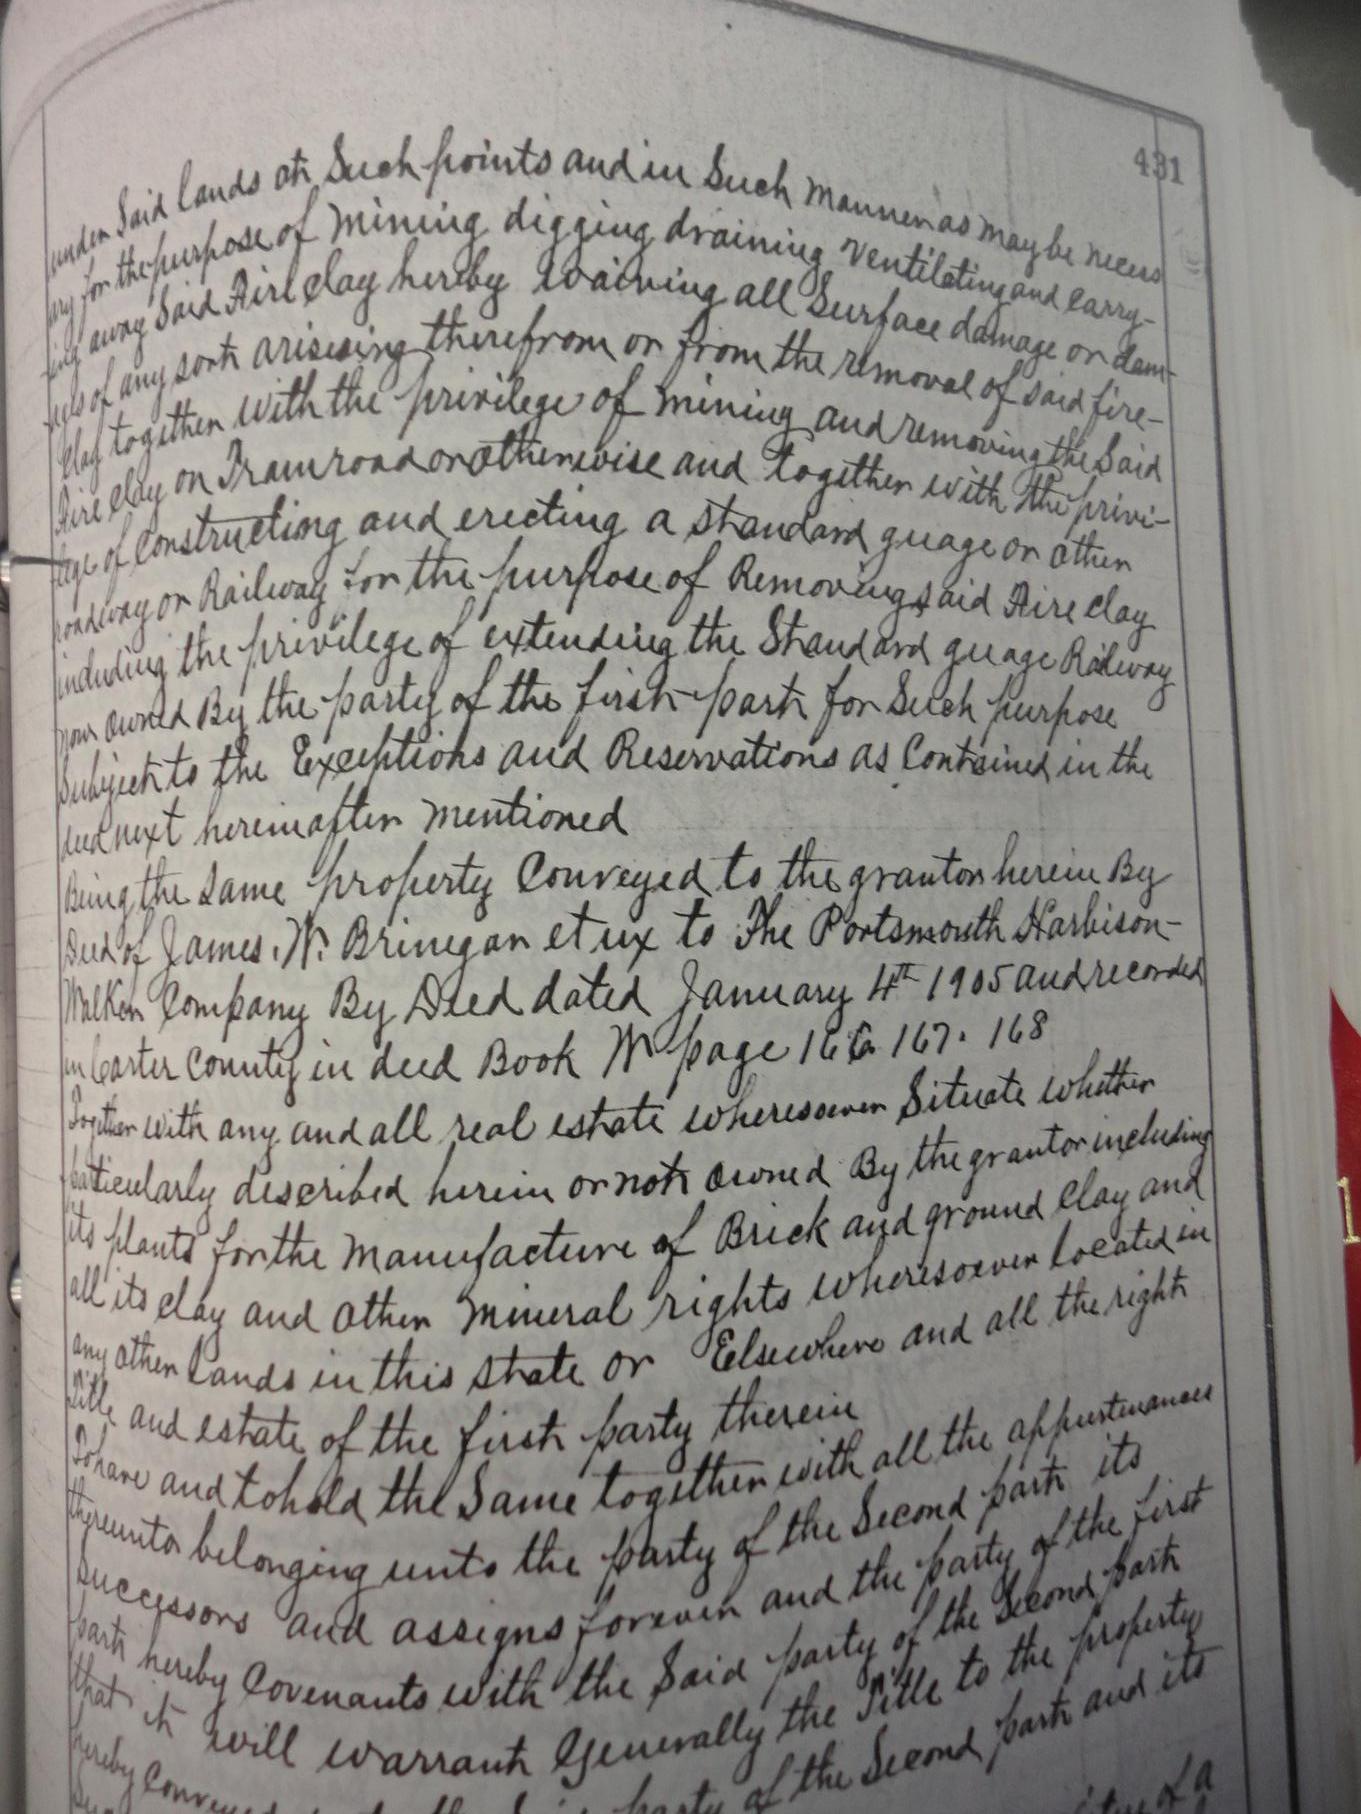 431
under Said lands at Such points and in Such manner as may be necess
ary for the purpose of mining digging draining ventilating and carry-
ing away Said Fire Clay hereby waiving all Surface damage or dam-
ages of any sort arisising therefrom or from the removal of said fire-
Clay together with the privilege of mining and removing the Said
Fire Clay on Tramroad or otherwise and together with the privi-
lege of Constructing and erecting a standard guage or other
roadway or Railway for the purpose of Removing said Fire clay
including the privilege of extending the Standard guage Railway
now owned By the party of the first part for Such purpose
Subject to the Exceptions and Reservations as Contained in the
deed next hereinafter mentioned
Being the same property Conveyed to the grantor herein By
Deed of James. W. Brinegar et ux to The Portsmouth Harbison-
Walker Company By Deed dated January 4th 1905 and recorded
in Carter County in deed Book W page 166 167. 168
Together with any and all real estate wheresoever Situate whether
particularly described herein or not owned By the grantor including
its plants for the manufacture of Brick and ground Clay and
all its clay and other mineral rights wheresoever located in
any other lands in this state or Elsewhere and all the right
Title and estate of the first party therein
To have and to hold the Same together with all the appurtenances
thereunto belonging unto the party of the Second part its
Successors and assigns forever and the party of the first
part hereby Covenants with the Said party of the Second part
that it will warrant Generally the Title to the property
hereby Conveyed party of the Second part and its
of a